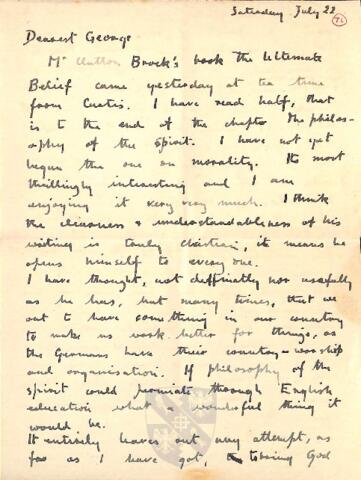 Saturday July 22
Dearest George
Mr Clutton Brock's book the Ultimate
Belief came yesterday at tea time
from Curtis. I have read half, that
is to the end of the chapter the philos-
ophy of the spirit. I have not yet
begun the one on morality. Its most
thrillingly interesting and I am
enjoying it very very much. I think
the clearness & understandableness of his
writing is truly christian, it means he
opens himself to every one.
I have thought, not deffinatly nor usefully
as he has, but many times, that we
out to have something in our country
to make us work better for things, as
the Germans have their country-worship
and organisation. If philosophy of the
spirit could permiate through English
education what a wonderful thing it
would be.
It entirely leaves out any attempt, as
far as I have got, to God